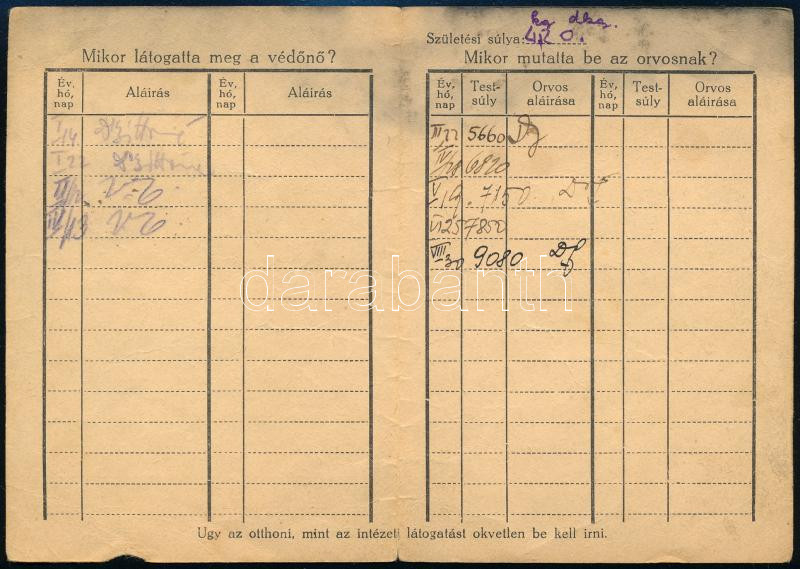 Mikor látogatta meg a védőnő?
Év, hó, nap Aláírás Év, hó, nap Aláírás
I/14
I 22
kg dkg.
Születési súlya:
Mikor mutatta be az orvosnak?
Év, hó, nap Test-súly Orvos aláírása Év, hó, nap Test-súly Orvos aláírása
III 22 5660
IV/20 6820
V 19. 7150
VI 25 7850
VIII 30 9080
darabanth
Ugy az otthoni, mint az intézeti látogatást okvetlen be kell irni.